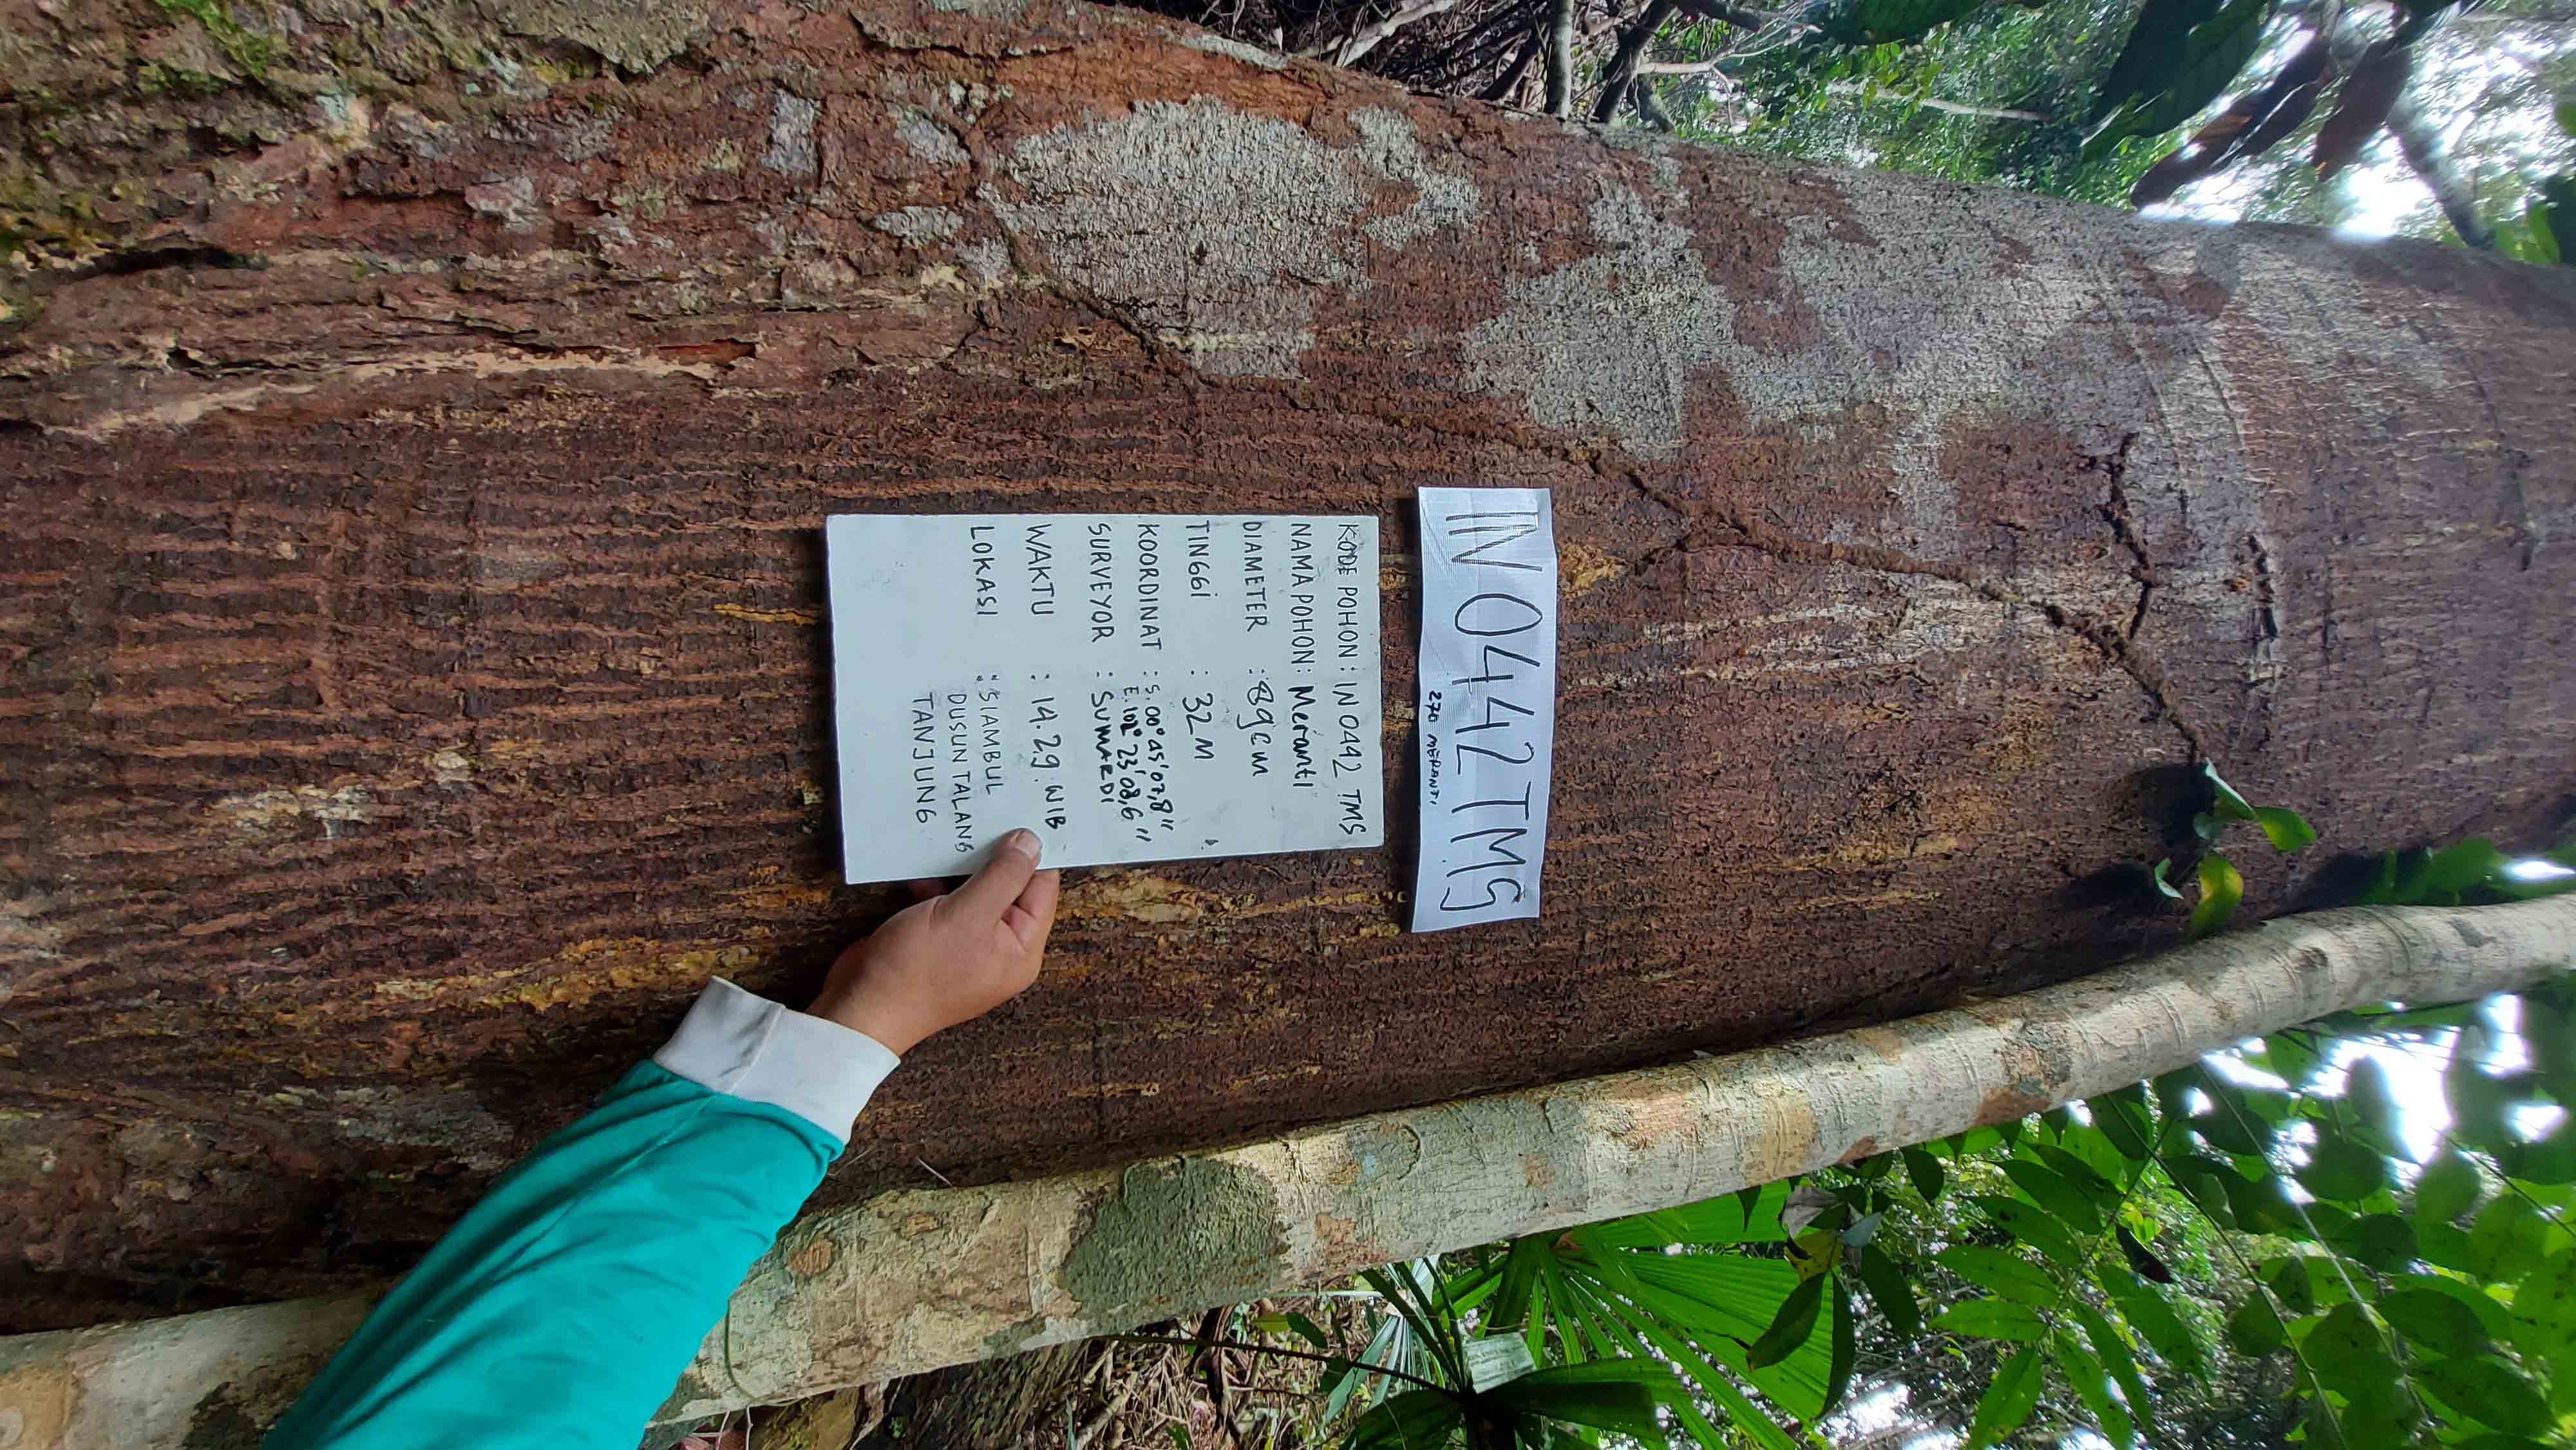 IN 0442 TMS
270 MERANTI
KODE POHON : IN 0442 TMS
NAMA POHON : Meranti
DIAMETER : 89cm
TINGGI : 32 M
KOORDINAT : S. 00° 45' 07,8"
E. 102° 23' 08,6"
SURVEYOR : SUMARDI
WAKTU : 14.29 WIB
LOKASI : SIAMBUL
DUSUN TALANG
TANJUNG